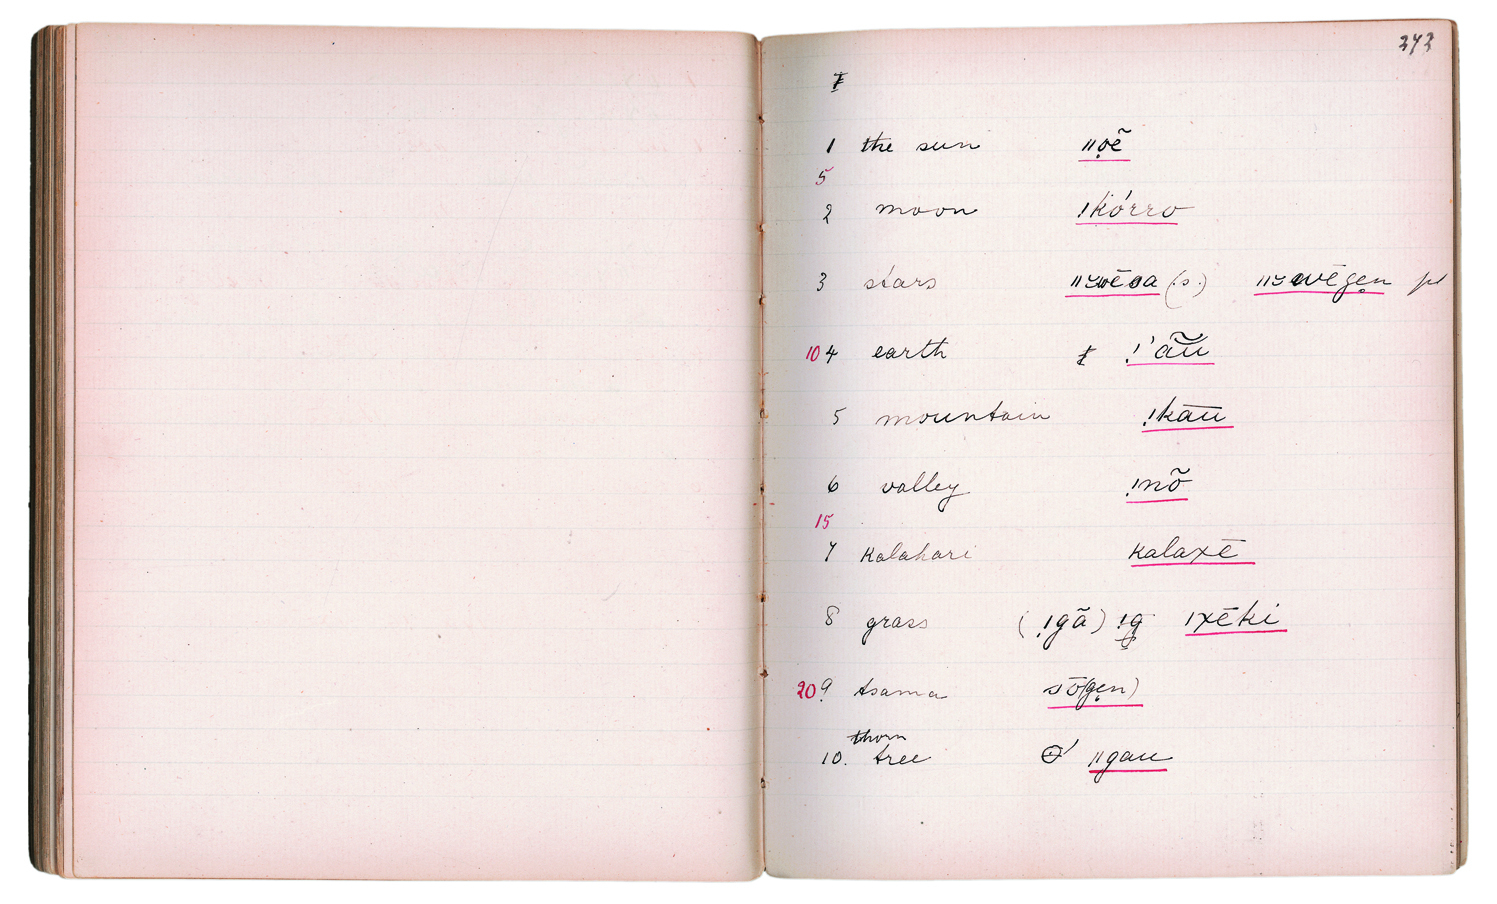 343
I
1 the sun ǁo̤ẽ
5
2 moon !kórro
3 stars (s.) pl
10 4 earth !'ãũ
5 mountain !kāū
6 valley !nõ
15
7 kalahari kalaxē
8 grass (!gã) !g ǀxēki
20 9 tsama sōgẹn)
thorn
10. tree ʘ' ǁgau